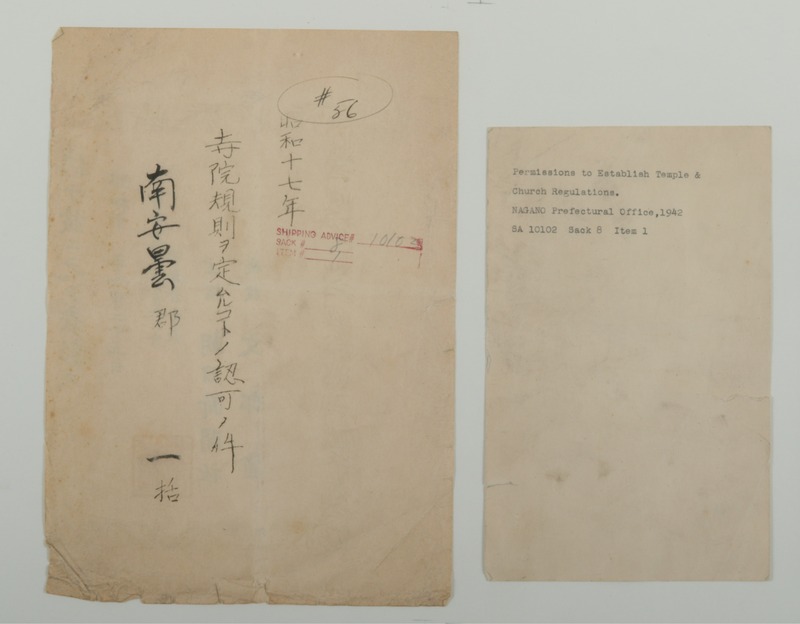 #56
昭和十七年
寺院規則ヲ定ムルコトノ認可ノ件
南安曇郡
一括
SHIPPING ADVICE#
SACK # 8
ITEM # 1
Permissions to Establish Temple &
Church Regulations.
NAGANO Prefectural Office,1942
SA 10102 Sack 8 Item 1